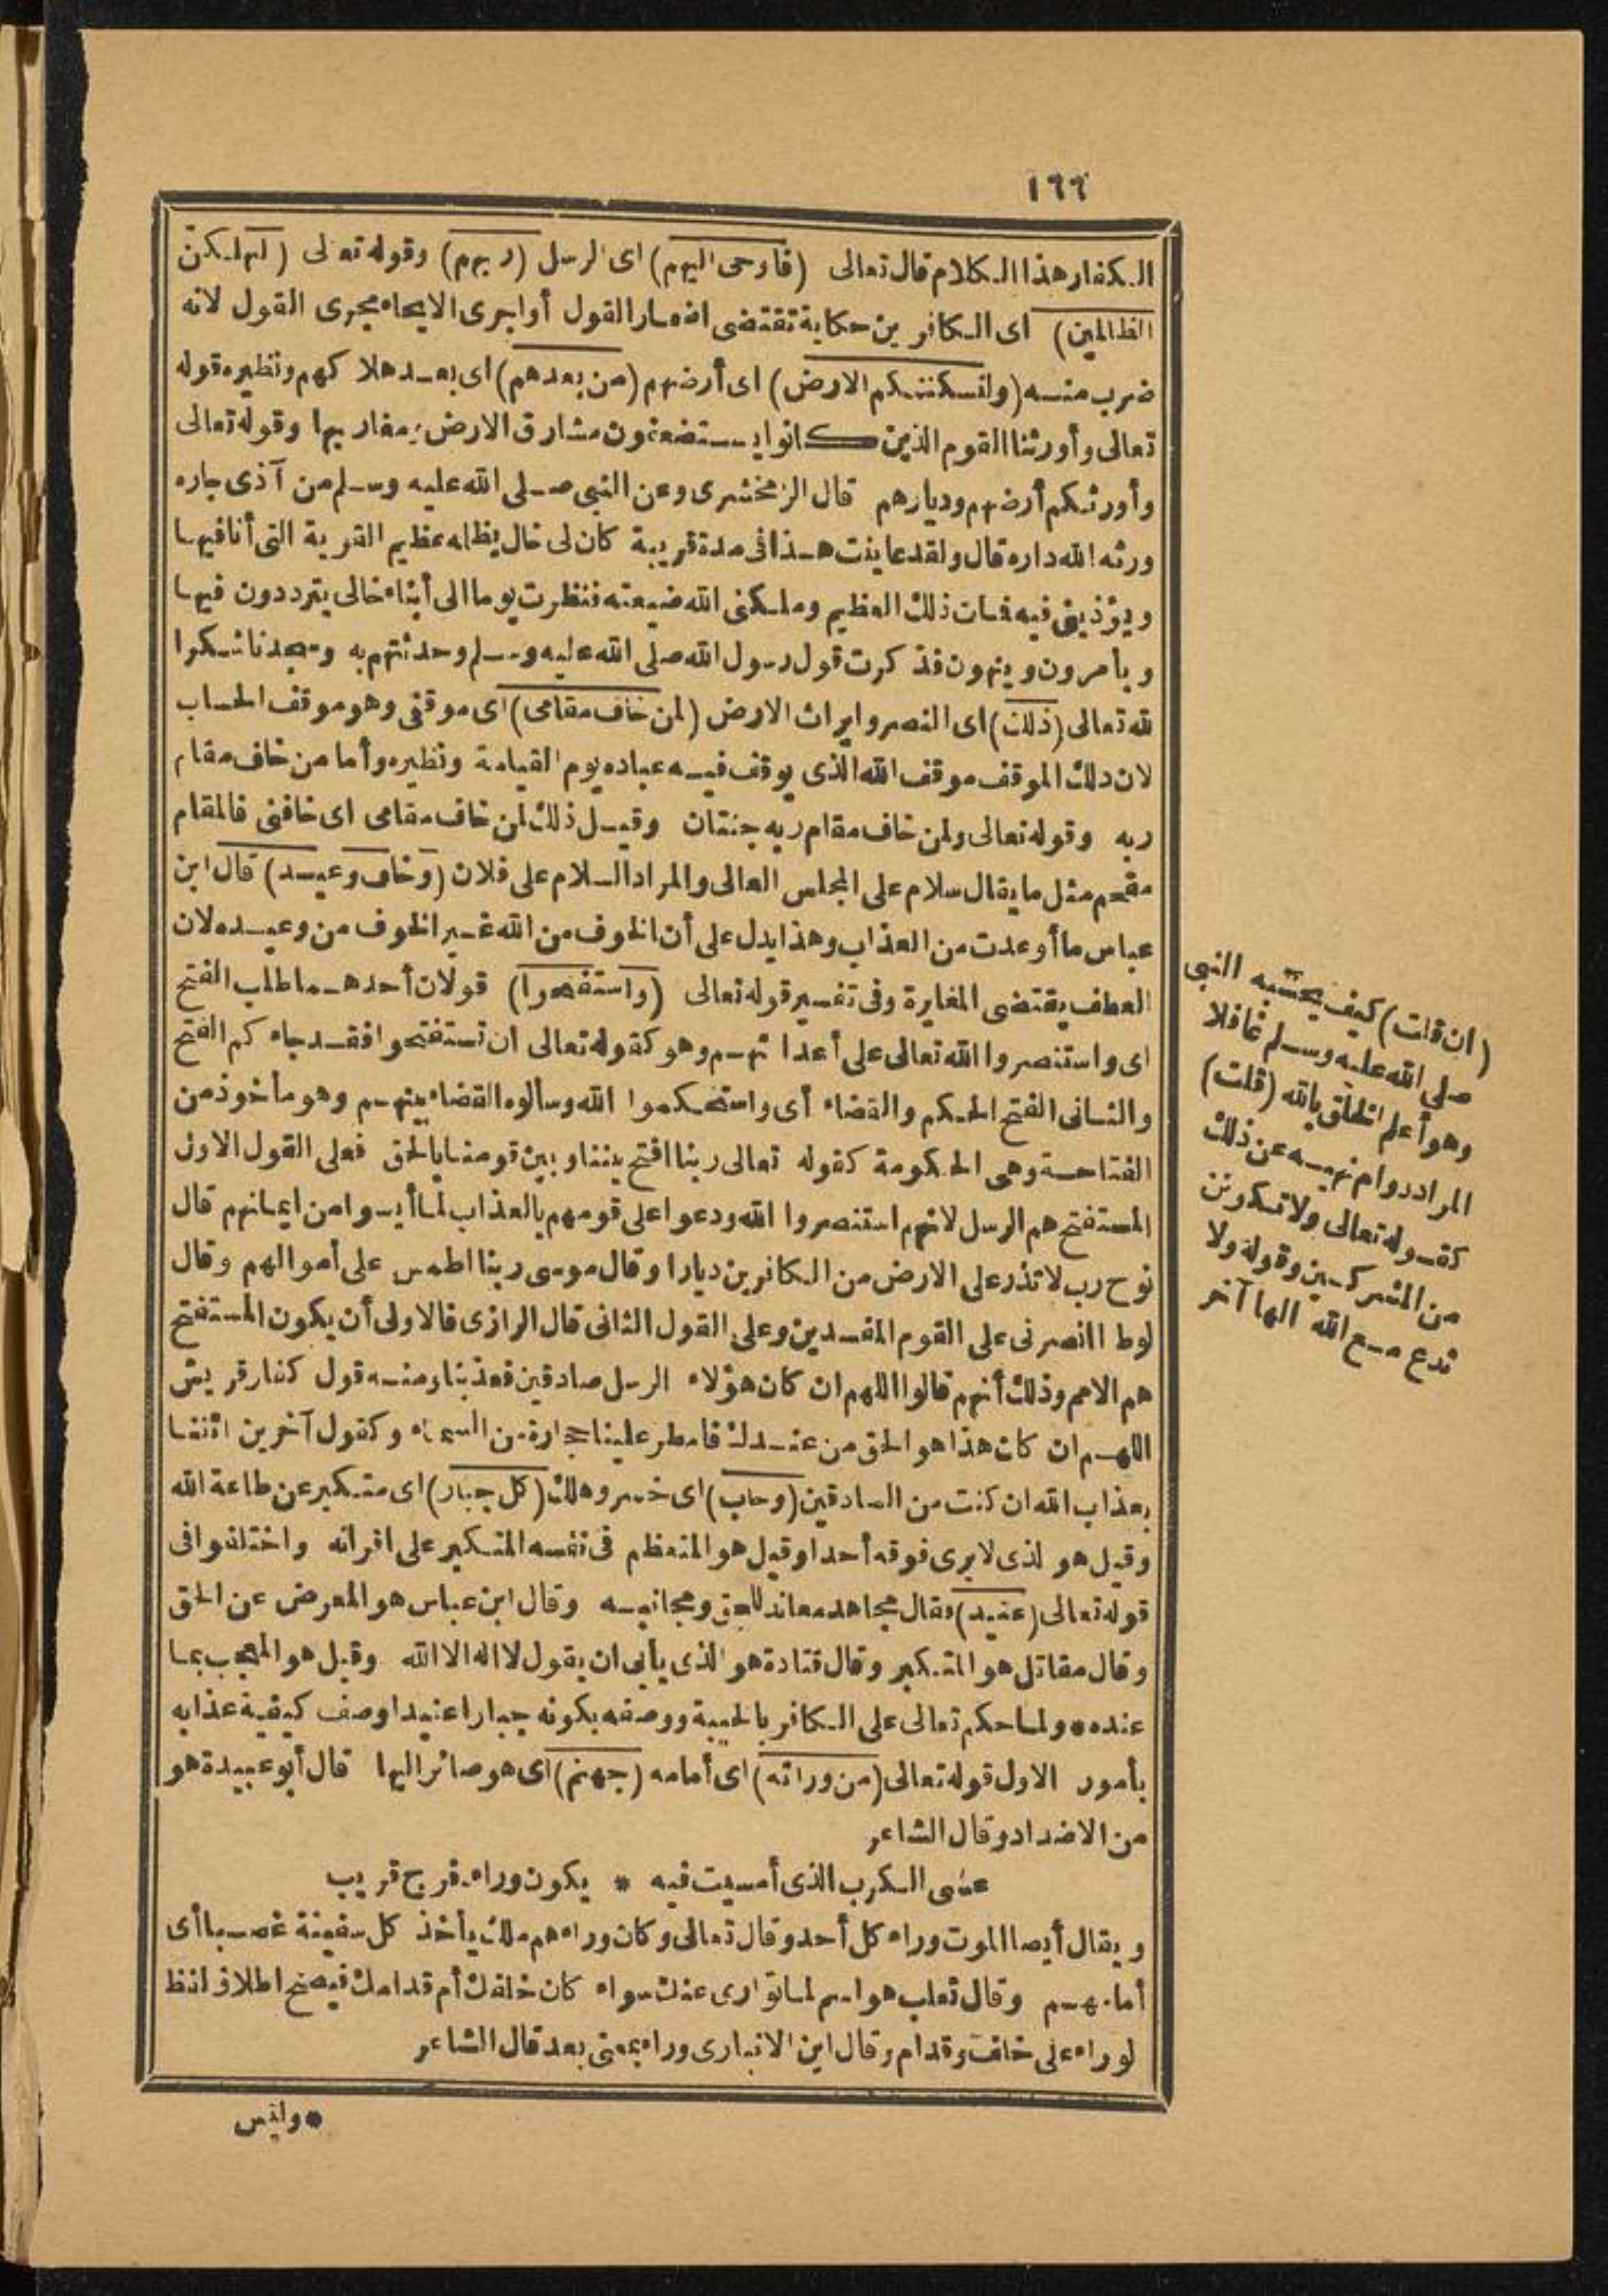 ١٦٦
الكفار هذا الكلام قال تعالى (فاوحى اليهم) اى الرسل (ربهم) وقوله تعالى (لنهلكن
الظالمين) اى الكافرين حكاية تقتضى اضمار القول أو اجرى الايحاء مجرى القول لانه
ضرب منه (ولنسكننكم الارض) اى أرضهم (من بعدهم) اى بعد هلاكهم ونظيره قوله
تعالى وأورثنا القوم الذين كانوا يستضعفون مشارق الارض ومغاربها وقوله تعالى
وأورثكم أرضهم وديارهم قال الزمخشرى وعن النبى صلى الله عليه وسلم من آذى جاره
ورثه الله داره قال ولقد عاينت هذا فى مدة قريبة كان لى خال يظلمه عظيم القرية التى أنا فيها
ويؤذينى فيه فمات ذلك العظيم وملكنى الله ضيعته فنظرت يوما الى أبناء خالى يترددون فيها
ويأمرون وينهون فذكرت قول رسول الله صلى الله عليه وسلم وحدثتهم به وسجدنا شكرا
لله تعالى (ذلك) اى النصر وايراث الارض (لمن خاف مقامى) اى موقفى وهو موقف الحساب
لان ذلك الموقف موقف الله الذى يوقف فيه عباده يوم القيامة ونظيره وأما من خاف مقام
ربه وقوله تعالى ولمن خاف مقام ربه جنتان وقيل ذلك لمن خاف مقامى اى خافنى فالمقام
مقحم مثل ما يقال سلام على المجلس العالى والمراد السلام على فلان (وخاف وعيد) قال ابن
عباس ما أوعدت من العذاب وهذا يدل على أن الخوف من الله غير الخوف من وعيده لان
العطف يقتضى المغايرة وفى تفسير قوله تعالى (واستفتحوا) قولان أحدهما طلب الفتح
اى واستنصروا الله تعالى على أعدائهم وهو كقوله تعالى ان تستفتحوا فقد جاءكم الفتح
والثانى الفتح الحكم والقضاء أى واستحكموا الله وسألوه القضاء بينهم وهو مأخوذ من
الفتاحة وهى الحكومة كقوله تعالى ربنا افتح بيننا وبين قومنا بالحق فعلى القول الاول
المستفتح هم الرسل لانهم استنصروا الله ودعوا على قومهم بالعذاب لما أيسوا من ايمانهم قال
نوح رب لا تذر على الارض من الكافرين ديارا وقال موسى ربنا اطمس على أموالهم وقال
لوط انصرنى على القوم المفسدين وعلى القول الثانى قال الرازى فالاولى أن يكون المستفتح
هم الامم وذلك أنهم قالوا اللهم ان كان هؤلاء الرسل صادقين فعذبنا ومنه قول كفار قريش
اللهم ان كان هذا هو الحق من عندك فامطر علينا حجارة من السماء وكقول آخرين ائتنا
بعذاب الله ان كنت من الصادقين (وخاب) اى خسر وهلك (كل جبار) اى متكبر عن طاعة الله
وقيل هو الذى لا يرى فوقه أحدا وقيل هو المتعظم فى نفسه المتكبر على اقرانه واختلفوا فى
قوله تعالى (عنيد) فقال مجاهد معاند للحق ومجانبه وقال ابن عباس هو المعرض عن الحق
وقال مقاتل هو المتكبر وقال قتادة هو الذى يأبى ان يقول لا اله الا الله وقيل هو المعجب بما
عنده * ولما حكم تعالى على الكافر بالخيبة ووصفه بكونه جبارا عنيدا وصف كيفية عذابه
بأمور الاول قوله تعالى (من ورائه) اى أمامه (جهنم) اى هو صائر اليها قال أبو عبيدة هو
من الاضداد وقال الشاعر
عسى الكرب الذى أمسيت فيه * يكون وراءه فرج قريب
ويقال أيضا الموت وراء كل أحد وقال تعالى وكان وراءهم ملك يأخذ كل سفينة غصبا أى
أمامهم وقال ثعلب هو اسم لما توارى عنك سواء كان خلفك أم قدامك فيصح اطلاق لفظ
لوراء على خلف وقدام وقال ابن الانبارى وراء بمعنى بعد قال الشاعر
* وليس
(ان قلت) كيف يحسبه النبى
صلى الله عليه وسلم غافلا
وهو أعلم الخلق بالله (قلت)
المراد دوام نهيه عن ذلك
كقوله تعالى ولا تكونن
من المشركين وقوله ولا
تدع مع الله الها آخر